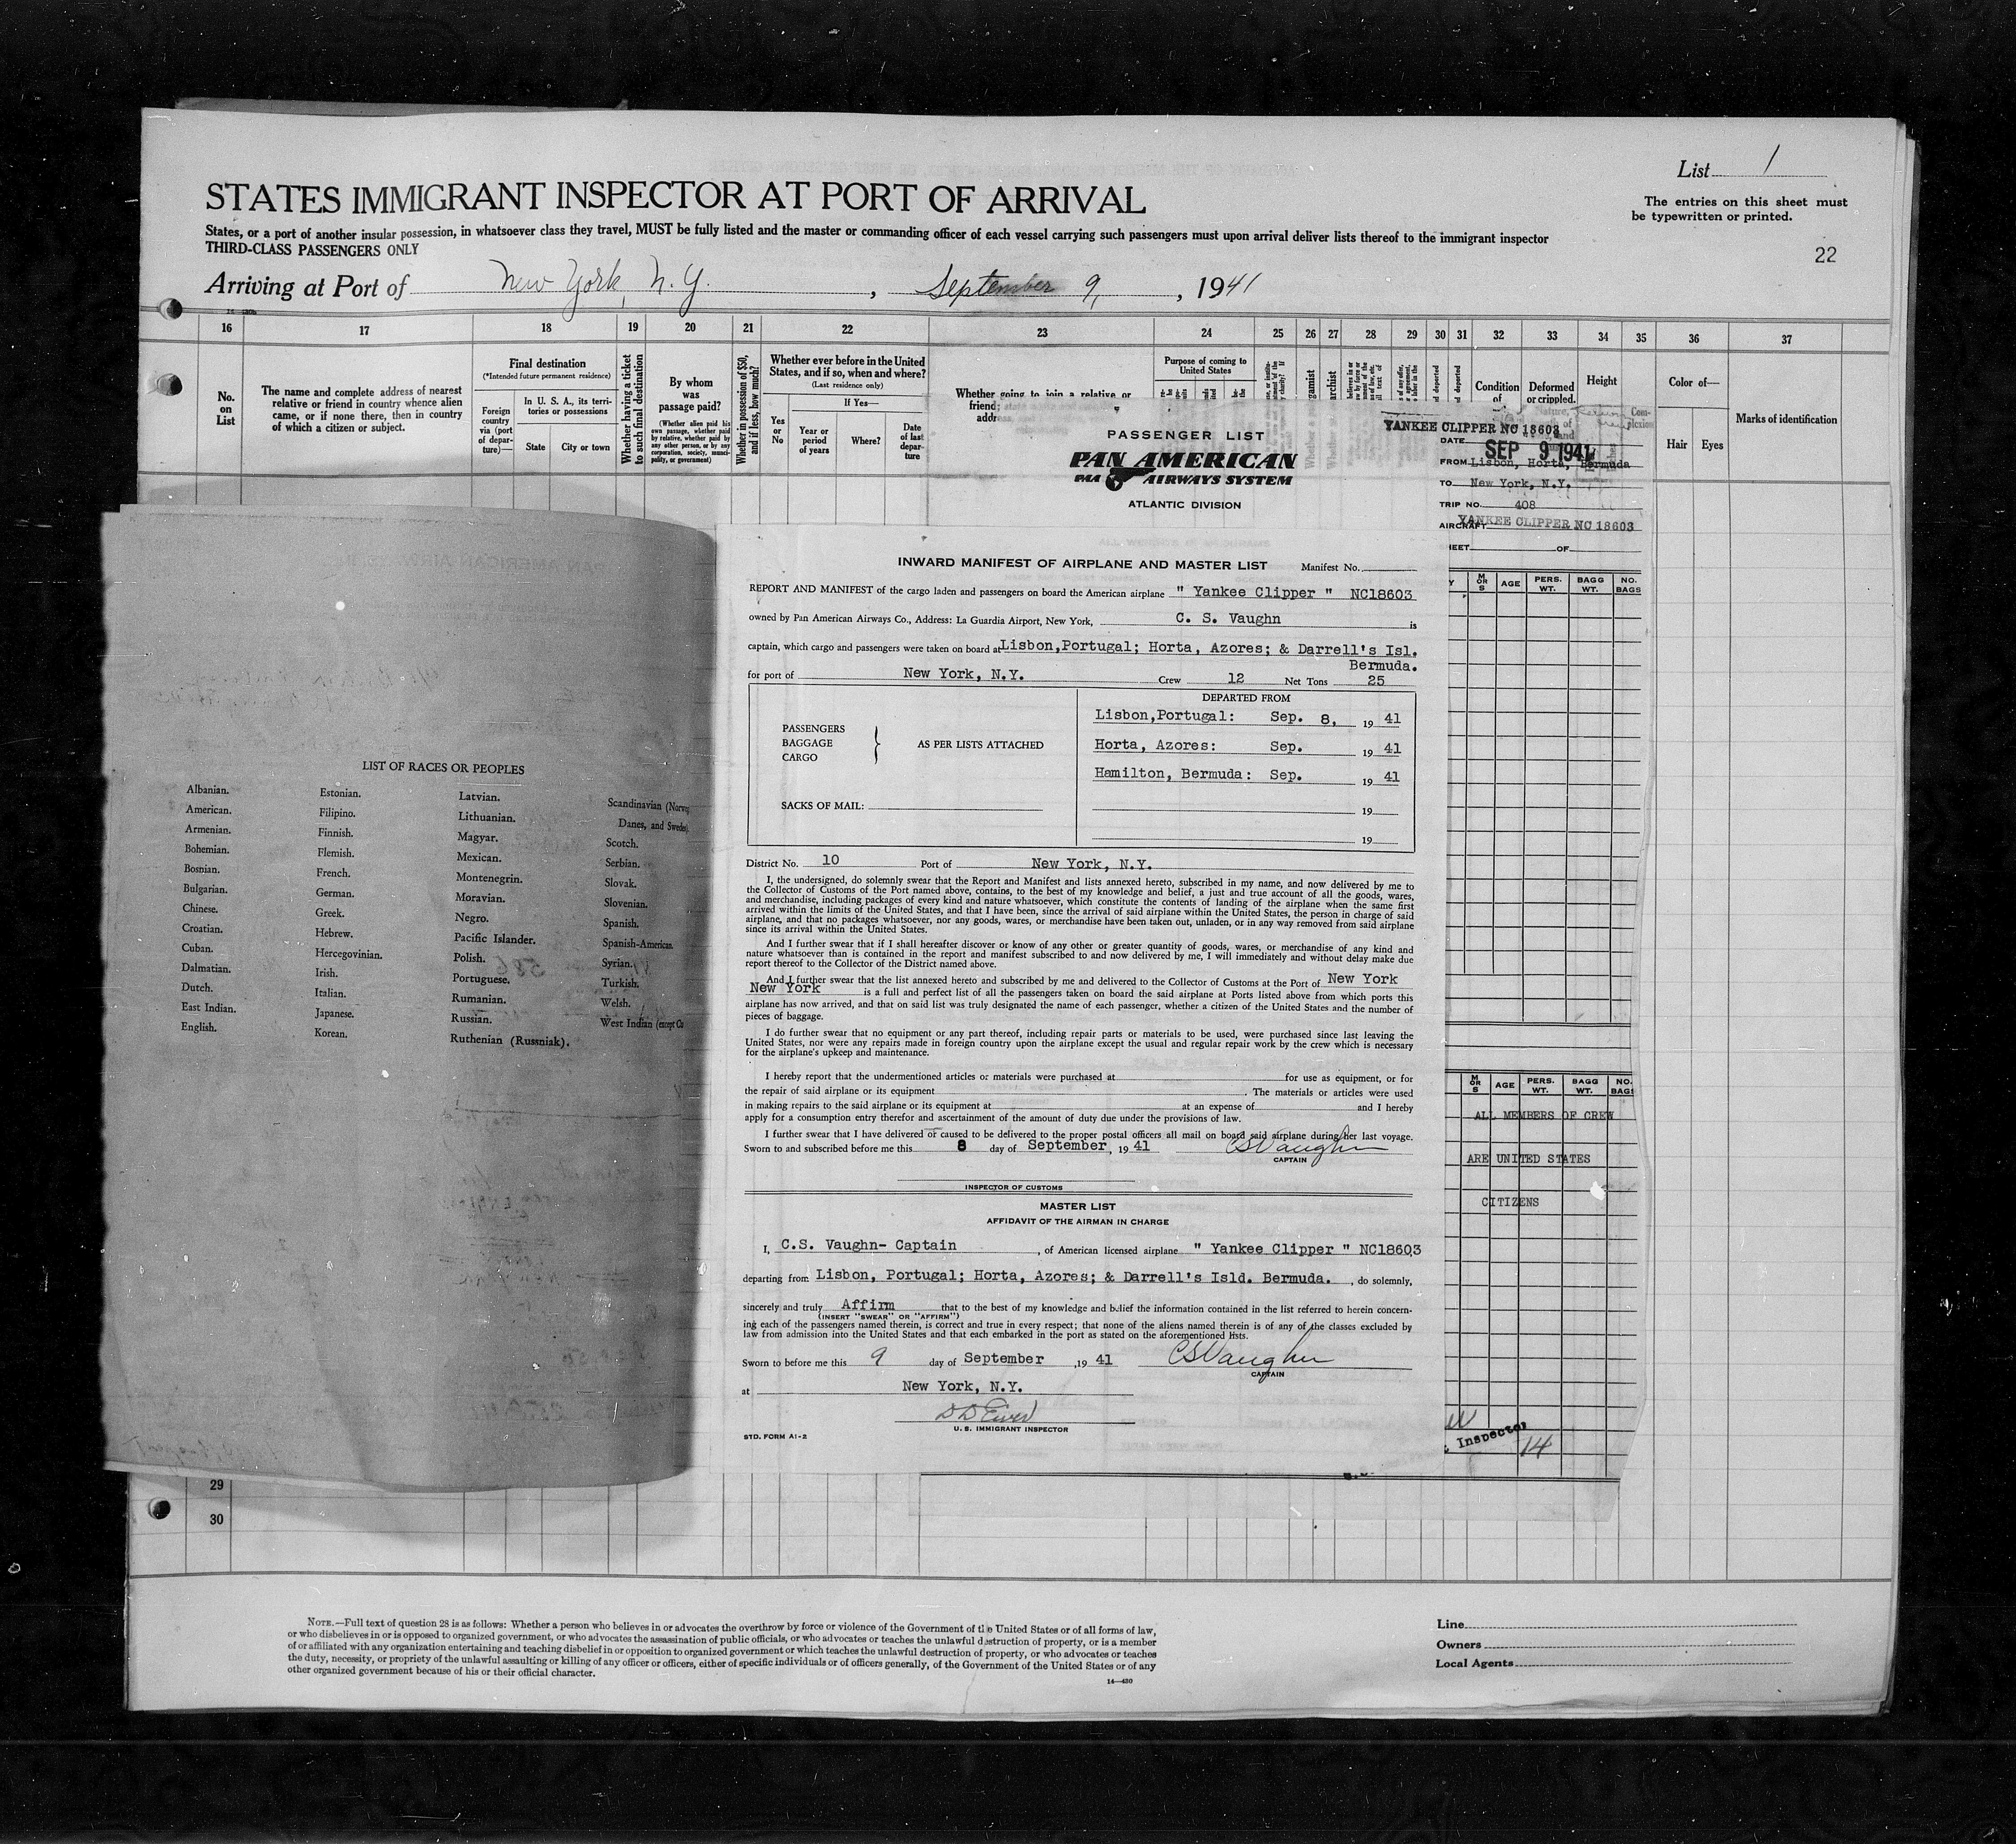 List 1
STATES IMMIGRANT INSPECTOR AT PORT OF ARRIVAL
The entries on this sheet must
be typewritten or printed.
States, or a port of another insular possession, in whatsoever class they travel, MUST be fully listed and the master or commanding officer of each vessel carrying such passengers must upon arrival deliver lists thereof to the immigrant inspector
THIRD-CLASS PASSENGERS ONLY
22
Arriving at Port of New York, N. Y. , September 9, , 1941
16 17 18 19 20 21 22 23 24 25 26 27 28 29 30 31 32 33 34 35 36 37
No.
on
List
The name and complete address of nearest
relative or friend in country whence alien
came, or if none there, then in country
of which a citizen or subject.
Final destination
(*Intended future permanent residence)
Foreign
country
via (port
of depar-
ture)—
In U. S. A., its terri-
tories or possessions
State City or town
Whether having a ticket
to such final destination
By whom
was
passage paid?
(Whether alien paid his
own passage, whether paid
by relative, whether paid by
any other person, or by any
corporation, society, munici-
pality, or government)
Whether in possession of $50,
and if less, how much?
Whether ever before in the United
States, and if so, when and where?
(Last residence only)
Yes
or
No
If Yes—
Year or
period
of years
Where?
Date
of last
depar-
ture
Whether going to join a relative or
friend;
addr
Purpose of coming to
United States
Condition
of
Deformed
or crippled.
Height
Color of—
Hair Eyes
Marks of identification
PASSENGER LIST
PAN AMERICAN
PAA AIRWAYS SYSTEM
ATLANTIC DIVISION
YANKEE CLIPPER NC 18603
DATE SEP 9 1941
FROM Lisbon, Horta, Bermuda
TO New York, N.Y.
TRIP NO. 408
AIRCRAFT YANKEE CLIPPER NC 18603
HEET OF
Y M OR S AGE PERS. WT. BAGG WT. NO. BAGS
INWARD MANIFEST OF AIRPLANE AND MASTER LIST Manifest No.
REPORT AND MANIFEST of the cargo laden and passengers on board the American airplane " Yankee Clipper " NC18603
owned by Pan American Airways Co., Address: La Guardia Airport, New York, C. S. Vaughn is
captain, which cargo and passengers were taken on board at Lisbon,Portugal; Horta, Azores; & Darrell's Isl.
Bermuda.
for port of New York, N.Y. Crew 12 Net Tons 25
PASSENGERS
BAGGAGE
CARGO
AS PER LISTS ATTACHED
SACKS OF MAIL:
DEPARTED FROM
Lisbon,Portugal: Sep. 8, 19 41
Horta, Azores: Sep. 19 41
Hamilton, Bermuda: Sep. 19 41
19
19
District No. 10 Port of New York, N.Y.
I, the undersigned, do solemnly swear that the Report and Manifest and lists annexed hereto, subscribed in my name, and now delivered by me to
the Collector of Customs of the Port named above, contains, to the best of my knowledge and belief, a just and true account of all the goods, wares,
and merchandise, including packages of every kind and nature whatsoever, which constitute the contents of landing of the airplane when the same first
arrived within the limits of the United States, and that I have been, since the arrival of said airplane within the United States, the person in charge of said
airplane, and that no packages whatsoever, nor any goods, wares, or merchandise have been taken out, unladen, or in any way removed from said airplane
since its arrival within the United States.
And I further swear that if I shall hereafter discover or know of any other or greater quantity of goods, wares, or merchandise of any kind and
nature whatsoever than is contained in the report and manifest subscribed to and now delivered by me, I will immediately and without delay make due
report thereof to the Collector of the District named above.
And I further swear that the list annexed hereto and subscribed by me and delivered to the Collector of Customs at the Port of New York
New York is a full and perfect list of all the passengers taken on board the said airplane at Ports listed above from which ports this
airplane has now arrived, and that on said list was truly designated the name of each passenger, whether a citizen of the United States and the number of
pieces of baggage.
I do further swear that no equipment or any part thereof, including repair parts or materials to be used, were purchased since last leaving the
United States, nor were any repairs made in foreign country upon the airplane except the usual and regular repair work by the crew which is necessary
for the airplane's upkeep and maintenance.
I hereby report that the undermentioned articles or materials were purchased at for use as equipment, or for
the repair of said airplane or its equipment . The materials or articles were used
in making repairs to the said airplane or its equipment at at an expense of and I hereby
apply for a consumption entry therefor and ascertainment of the amount of duty due under the provisions of law.
I further swear that I have delivered or caused to be delivered to the proper postal officers all mail on board said airplane during her last voyage.
Sworn to and subscribed before me this 8 day of September, 19 41 CSVaughn
CAPTAIN
INSPECTOR OF CUSTOMS
MASTER LIST
AFFIDAVIT OF THE AIRMAN IN CHARGE
I, C.S. Vaughn- Captain , of American licensed airplane " Yankee Clipper " NC18603
departing from Lisbon, Portugal; Horta, Azores; & Darrell's Isld. Bermuda. , do solemnly,
sincerely and truly Affirm that to the best of my knowledge and belief the information contained in the list referred to herein concern-
(INSERT "SWEAR" OR "AFFIRM")
ing each of the passengers named therein, is correct and true in every respect; that none of the aliens named therein is of any of the classes excluded by
law from admission into the United States and that each embarked in the port as stated on the aforementioned lists.
Sworn to before me this 9 day of September ,19 41 CSVaughn
CAPTAIN
at New York, N.Y.
U. S. IMMIGRANT INSPECTOR
STD. FORM A1-2
M OR S AGE PERS. WT. BAGG WT. NO. BAGS
ALL MEMBERS OF CREW
ARE UNITED STATES
CITIZENS
Inspector
14
LIST OF RACES OR PEOPLES
Albanian.
American.
Armenian.
Bohemian.
Bosnian.
Bulgarian.
Chinese.
Croatian.
Cuban.
Dalmatian.
Dutch.
East Indian.
English.
Estonian.
Filipino.
Finnish.
Flemish.
French.
German.
Greek.
Hebrew.
Hercegovinian.
Irish.
Italian.
Japanese.
Korean.
Latvian.
Lithuanian.
Magyar.
Mexican.
Montenegrin.
Moravian.
Negro.
Pacific Islander.
Polish.
Portuguese.
Rumanian.
Russian.
Ruthenian (Russniak).
Scandinavian (Norwe
Danes, and Swedes).
Scotch.
Serbian.
Slovak.
Slovenian.
Spanish.
Spanish-American.
Syrian.
Turkish.
Welsh.
West Indian (except Cu
29
30
NOTE.—Full text of question 28 is as follows: Whether a person who believes in or advocates the overthrow by force or violence of the Government of the United States or of all forms of law,
or who disbelieves in or is opposed to organized government, or who advocates the assassination of public officials, or who advocates or teaches the unlawful destruction of property, or is a member
of or affiliated with any organization entertaining and teaching disbelief in or opposition to organized government or which teaches the unlawful destruction of property, or who advocates or teaches
the duty, necessity, or propriety of the unlawful assaulting or killing of any officer or officers, either of specific individuals or of officers generally, of the Government of the United States or of any
other organized government because of his or their official character.
14—430
Line
Owners
Local Agents